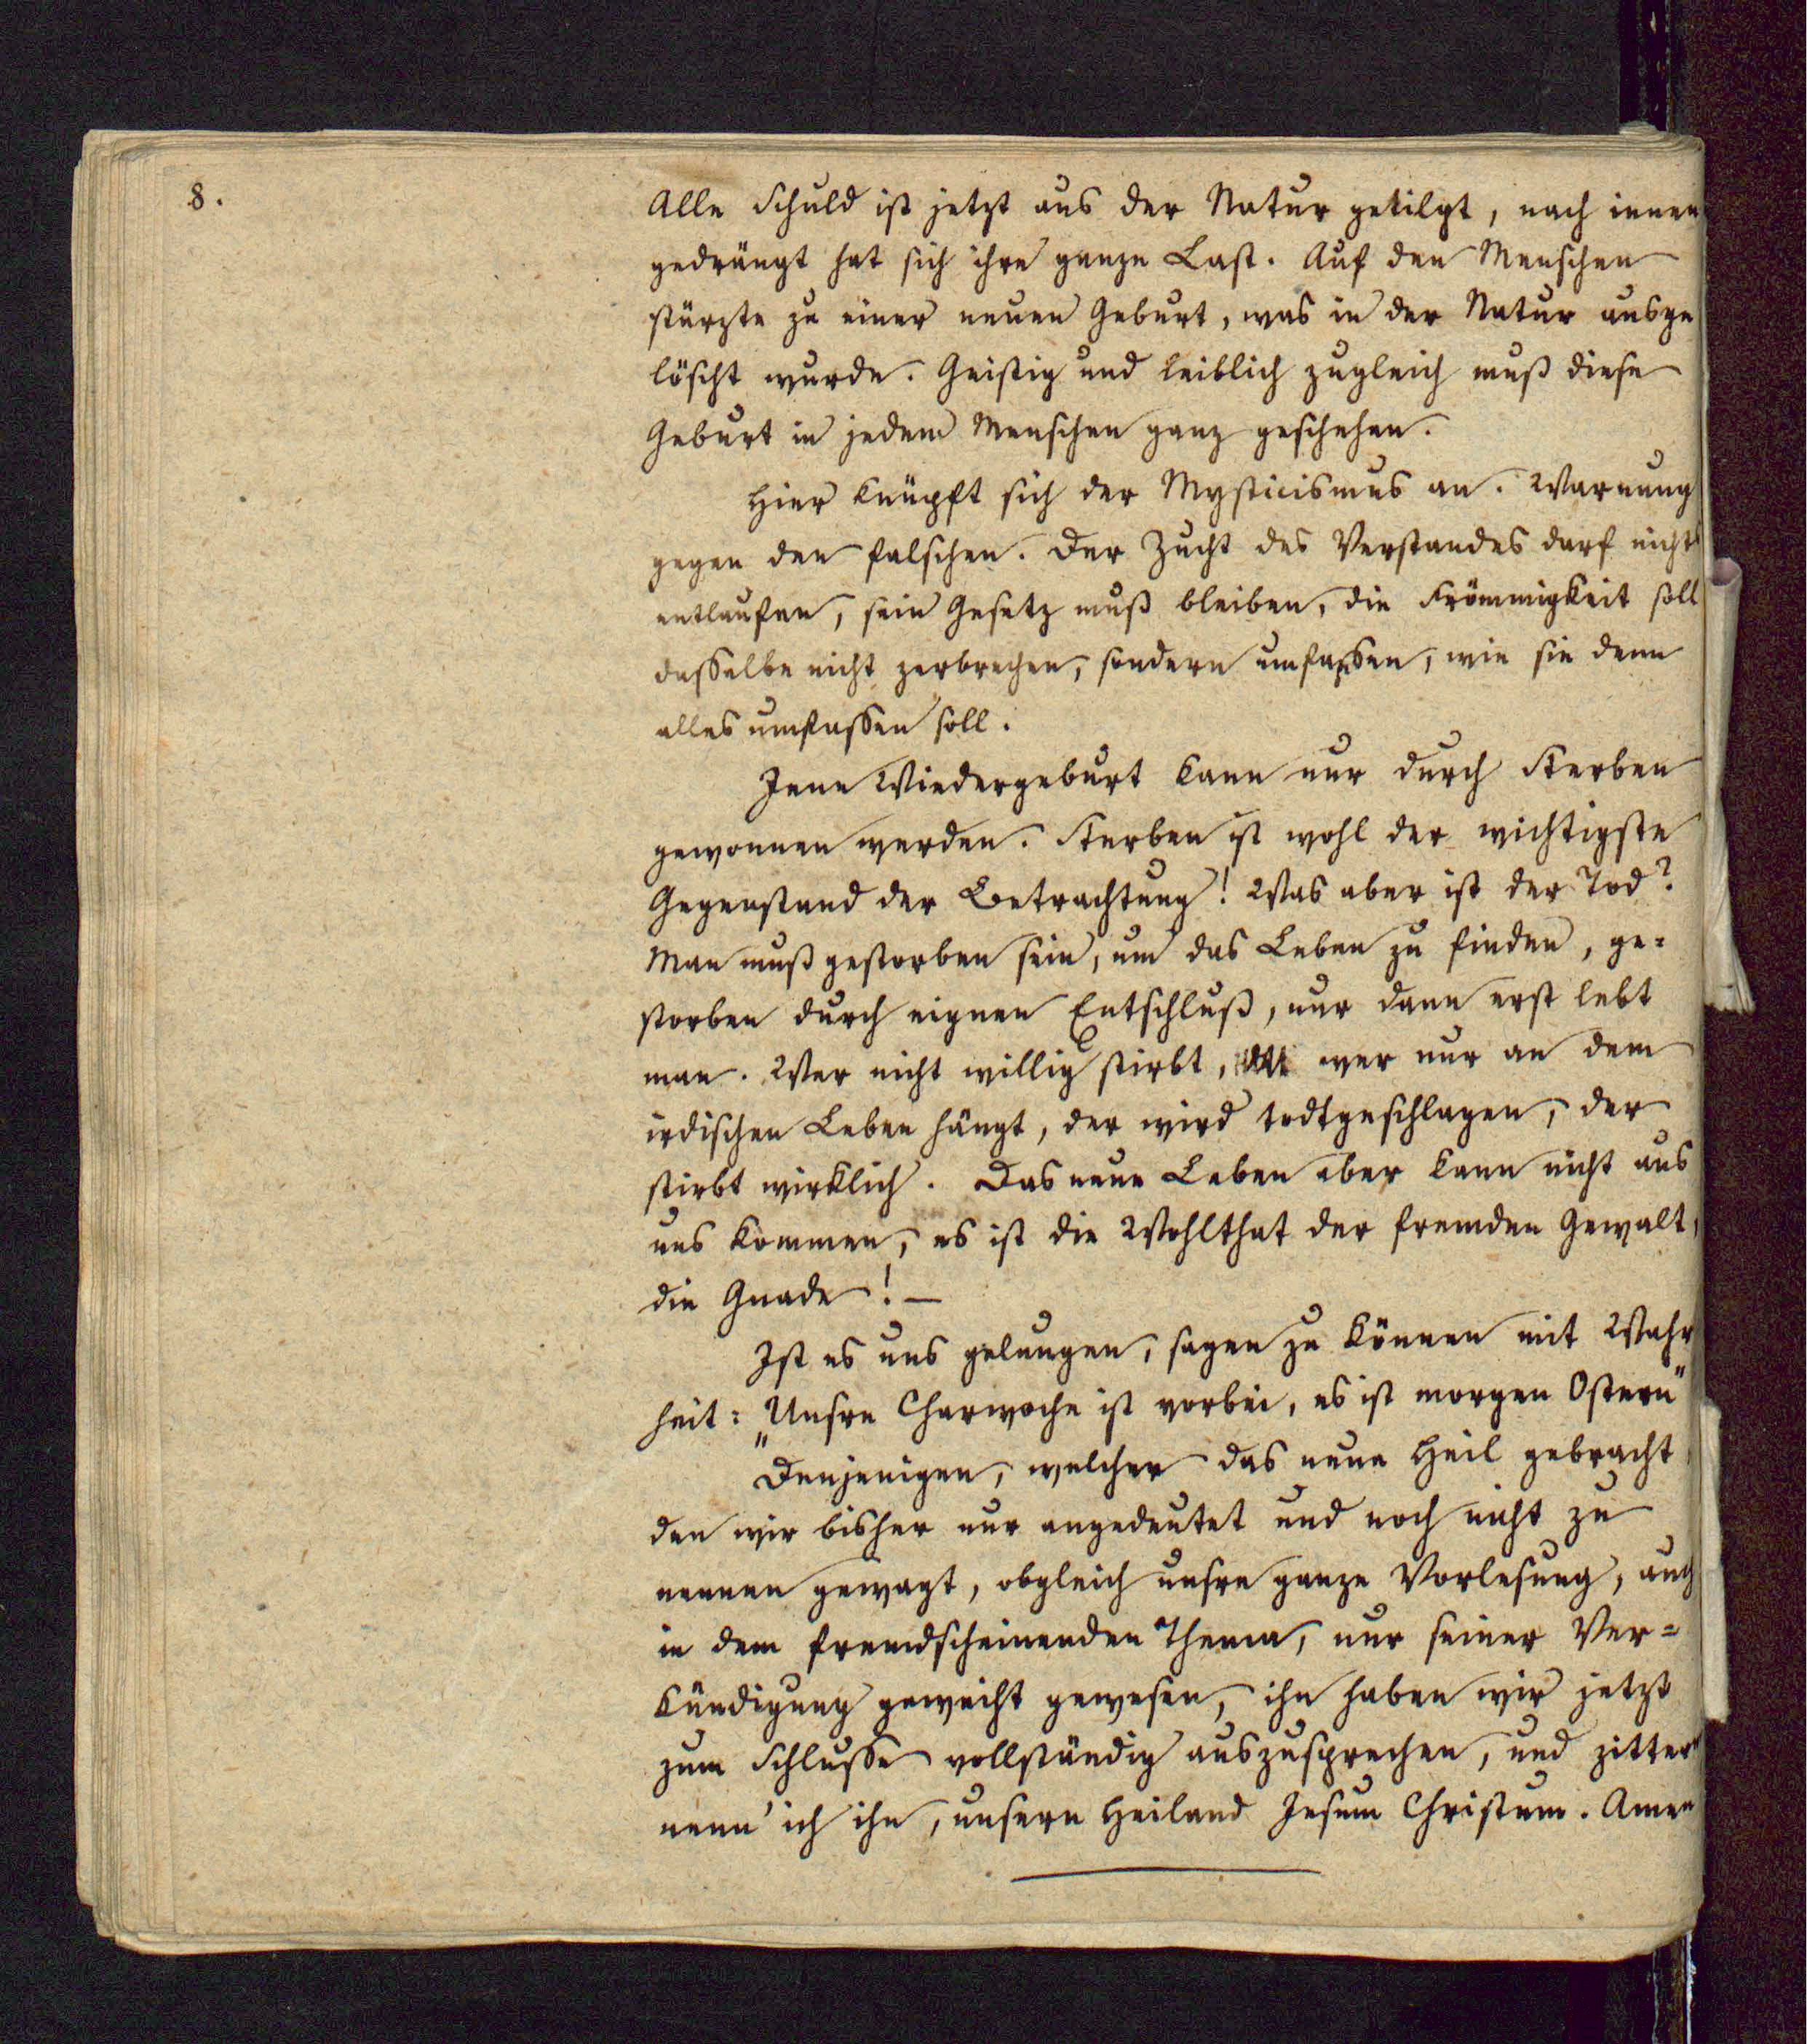 8.
Alle Schuld ist jetzt aus der Natur getilgt, nach innen
gedrängt hat sich ihre ganze Last. Auf den Menschen
stürzte zu einer neuen Geburt, was in der Natur ausge
löscht wurde. Geistig und leiblich zugleich muß diese
Geburt in jedem Menschen ganz geschehen.
Hier knüpft sich der Mysticismus an. Warnung
gegen den falschen. Der Zucht des Verstandes darf nichts
entlaufen, sein Gesetz muß bleiben, die Frömmigkeit soll
dasselbe nicht zerbrechen, sondern umfassen, wie sie denn
alles umfassen soll.
Jene Wiedergeburt kann nur durch Sterben
gewonnen werden. Sterben ist wohl der wichtigste
Gegenstand der Betrachtung! Was aber ist der Tod?
Man muß gestorben sein, um das Leben zu finden, ge=
storben durch eignen Entschluß, nur dann erst lebt
man. Wer nicht willig stirbt, wer nur an dem
irdischen Leben hängt, der wird todtgeschlagen, der
stirbt wirklich. Das neue Leben aber kann nicht aus
uns kommen, es ist die Wohlthat der fremden Gewalt,
die Gnade! —
Ist es uns gelungen, sagen zu können mit Wahr
heit: „Unsre Charwoche ist vorbei, es ist morgen Ostern"
Denjenigen, welcher das neue Heil gebracht
den wir bisher nur angedeutet und noch nicht zu
nennen gewagt, obgleich unsre ganze Vorlesung, auch
in dem fremdscheinenden Thema, nur seiner Ver=
kündigung geweiht gewesen, ihn haben wir jetzt
zum Schlusse vollständig auszusprechen, und zittern
nenn' ich ihn, unsern Heiland Jesum Christum. Amen